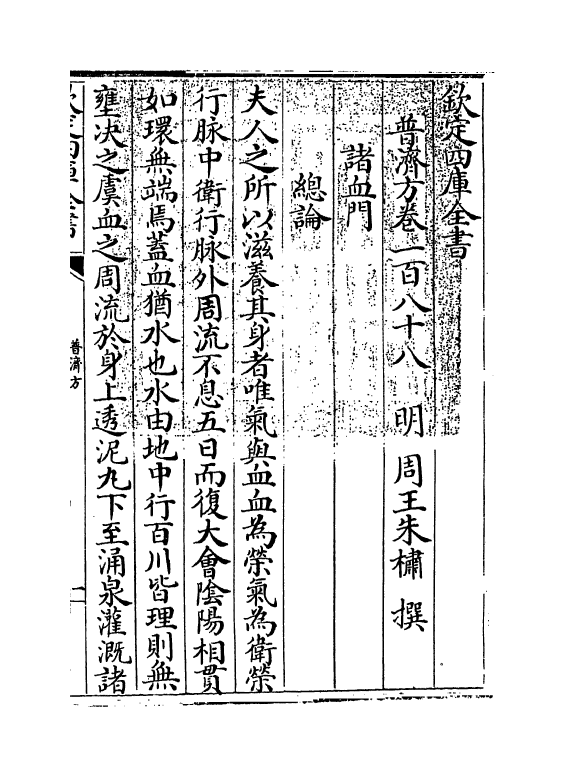 欽定四庫全書
普濟方卷一百八十八　明　周王朱橚　撰
諸血門
總論
夫人之所以滋養其身者唯氣與血血為榮氣為衛榮
行脉中衛行脉外周流不息五日而復大會陰陽相貫
如環無端焉蓋血猶水也水由地中行百川皆理則無
壅决之虞血之周流於身上透泥丸下至涌泉灌溉諸
欽定四庫全書
普濟方
一